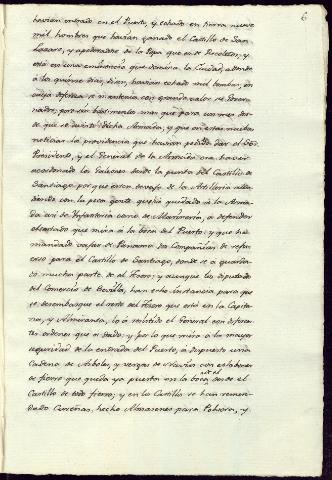 6
havian entrado en el Puerto, y echado en tierra nueve
mil hombres que havian ganado el Castillo de San
Lazaro, y apoderadose de la Popa que es de Recoletos, y
está en una eminencia que domina la Ciudad, adonde
á los quince dias, dicen, havian echado mil bombas, en
cuya defensa se mantenia con grande valor su Gover
nador, por sin bastimentos mas que para un mes des-
de que se avistó dicha Armada, y que en estas malas
noticias la providencia que havian podido dar el
Presidente, y el General de la Armada era haver
acordonado los Galeones desde la punta del Castillo de
Santiago por que estos debajo de la Artilleria aña
diendo con la poca gente que havia quedado á la Arma
da asi de Infanteria como de Marineria, á defender
el costado que mira á la boca del Puerto: y que ha
mandado bajar de Panama dos Compañias de refu
erzo para el Castillo de Santiago, donde se á guarda
do mucha parte de el Thesoro; y aunque los diputados
del Comercio de Sevilla, han echo instancia para que
se desembarque el resto del Thesoro que está en la Capita
na, y Almiranta, lo á resistido el General con diferen
tes ordenes que á dado; y por lo que mira á la mayor
seguridad de la entrada del Puerto, á dispuesto una
Cadena de Arboles, y vergas de Navios con eslabones
de fierro que queda ya puesta en la boca, desde el
Castillo de todo fierro; y en los Castillos se han remen
dado Cureñas, hecho Almasenes para Polvora, y